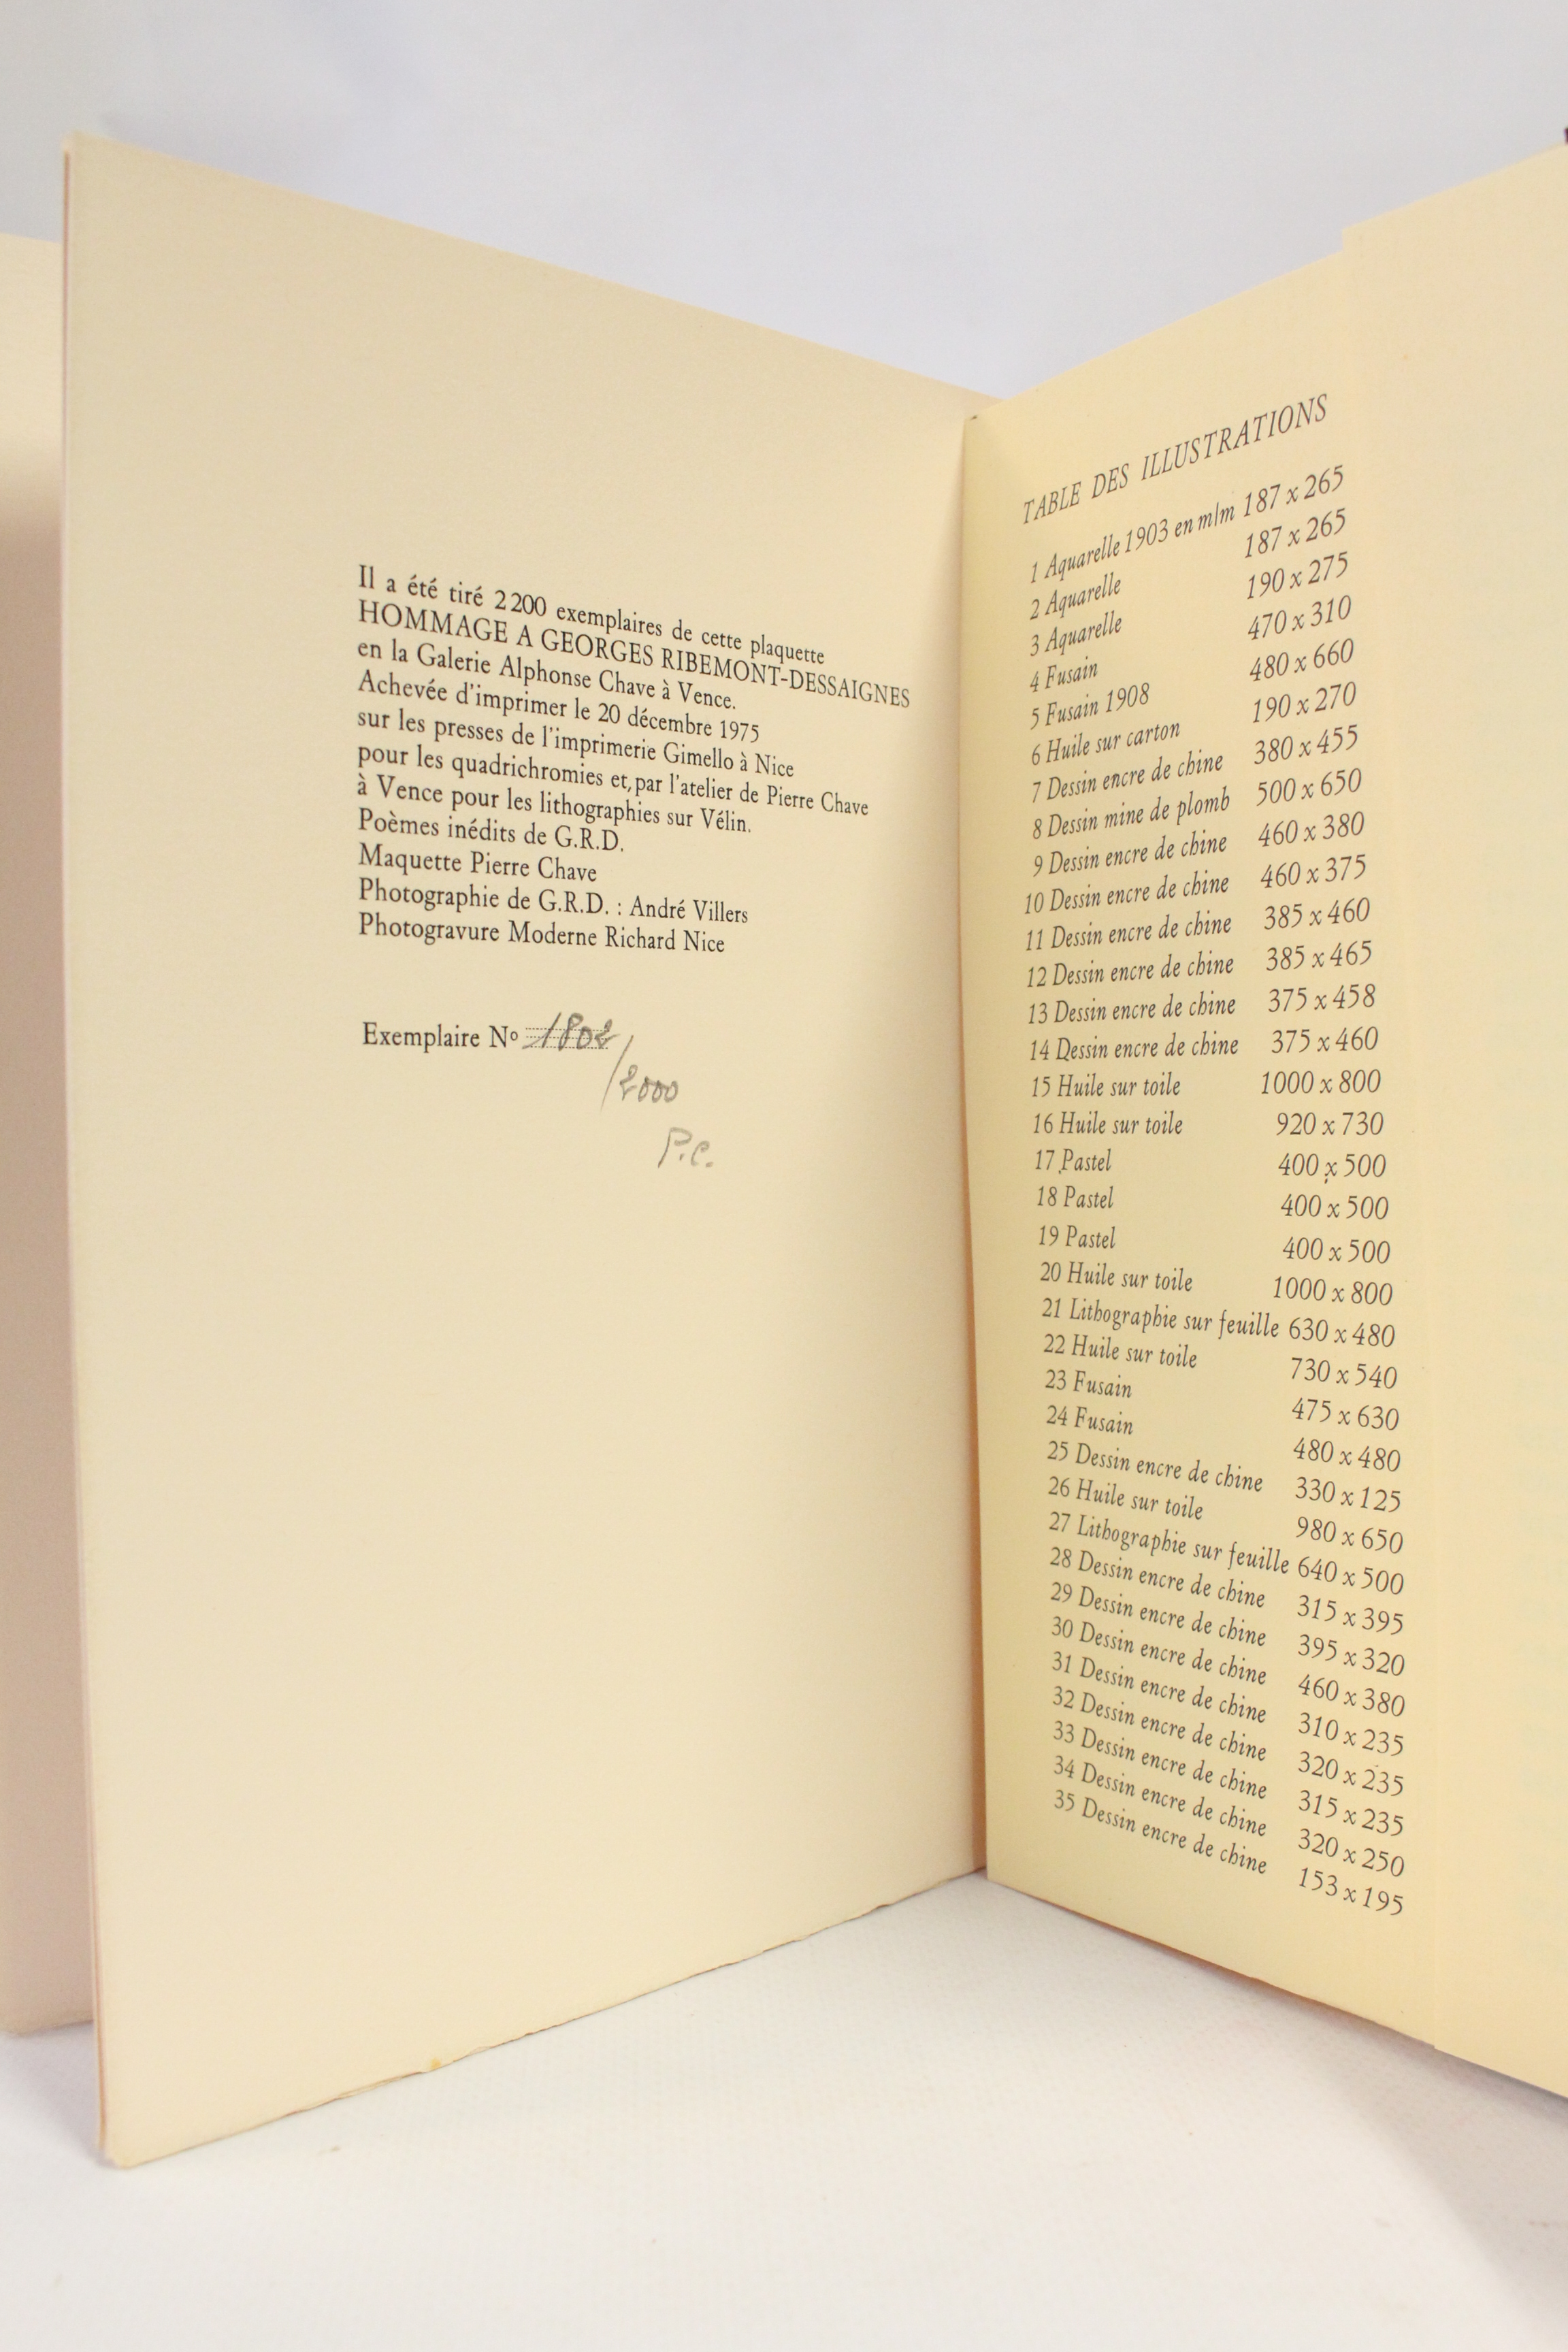 Il a été tiré 2200 exemplaires de cette plaquette
HOMMAGE A GEORGES RIBEMONT-DESSAIGNES
en la Galerie Alphonse Chave à Vence.
Achevée d'imprimer le 20 décembre 1975
sur les presses de l'imprimerie Gimello à Nice
pour les quadrichromies et, par l'atelier de Pierre Chave
à Vence pour les lithographies sur Vélin.
Poèmes inédits de G.R.D.
Maquette Pierre Chave
Photographie de G.R.D. : André Villers
Photogravure Moderne Richard Nice
Exemplaire Nº 1802
/2000
P.C.
TABLE DES ILLUSTRATIONS
1 Aquarelle 1903 en m/m 187 x 265
2 Aquarelle 187 x 265
3 Aquarelle 190 x 275
4 Fusain 470 x 310
5 Fusain 1908 480 x 660
6 Huile sur carton 190 x 270
7 Dessin encre de chine 380 x 455
8 Dessin mine de plomb 500 x 650
9 Dessin encre de chine 460 x 380
10 Dessin encre de chine 460 x 375
11 Dessin encre de chine 385 x 460
12 Dessin encre de chine 385 x 465
13 Dessin encre de chine 375 x 458
14 Dessin encre de chine 375 x 460
15 Huile sur toile 1000 x 800
16 Huile sur toile 920 x 730
17 Pastel 400 x 500
18 Pastel 400 x 500
19 Pastel 400 x 500
20 Huile sur toile 1000 x 800
21 Lithographie sur feuille 630 x 480
22 Huile sur toile 730 x 540
23 Fusain 475 x 630
24 Fusain 480 x 480
25 Dessin encre de chine 330 x 125
26 Huile sur toile 980 x 650
27 Lithographie sur feuille 640 x 500
28 Dessin encre de chine 315 x 395
29 Dessin encre de chine 395 x 320
30 Dessin encre de chine 460 x 380
31 Dessin encre de chine 310 x 235
32 Dessin encre de chine 320 x 235
33 Dessin encre de chine 315 x 235
34 Dessin encre de chine 320 x 250
35 Dessin encre de chine 153 x 195